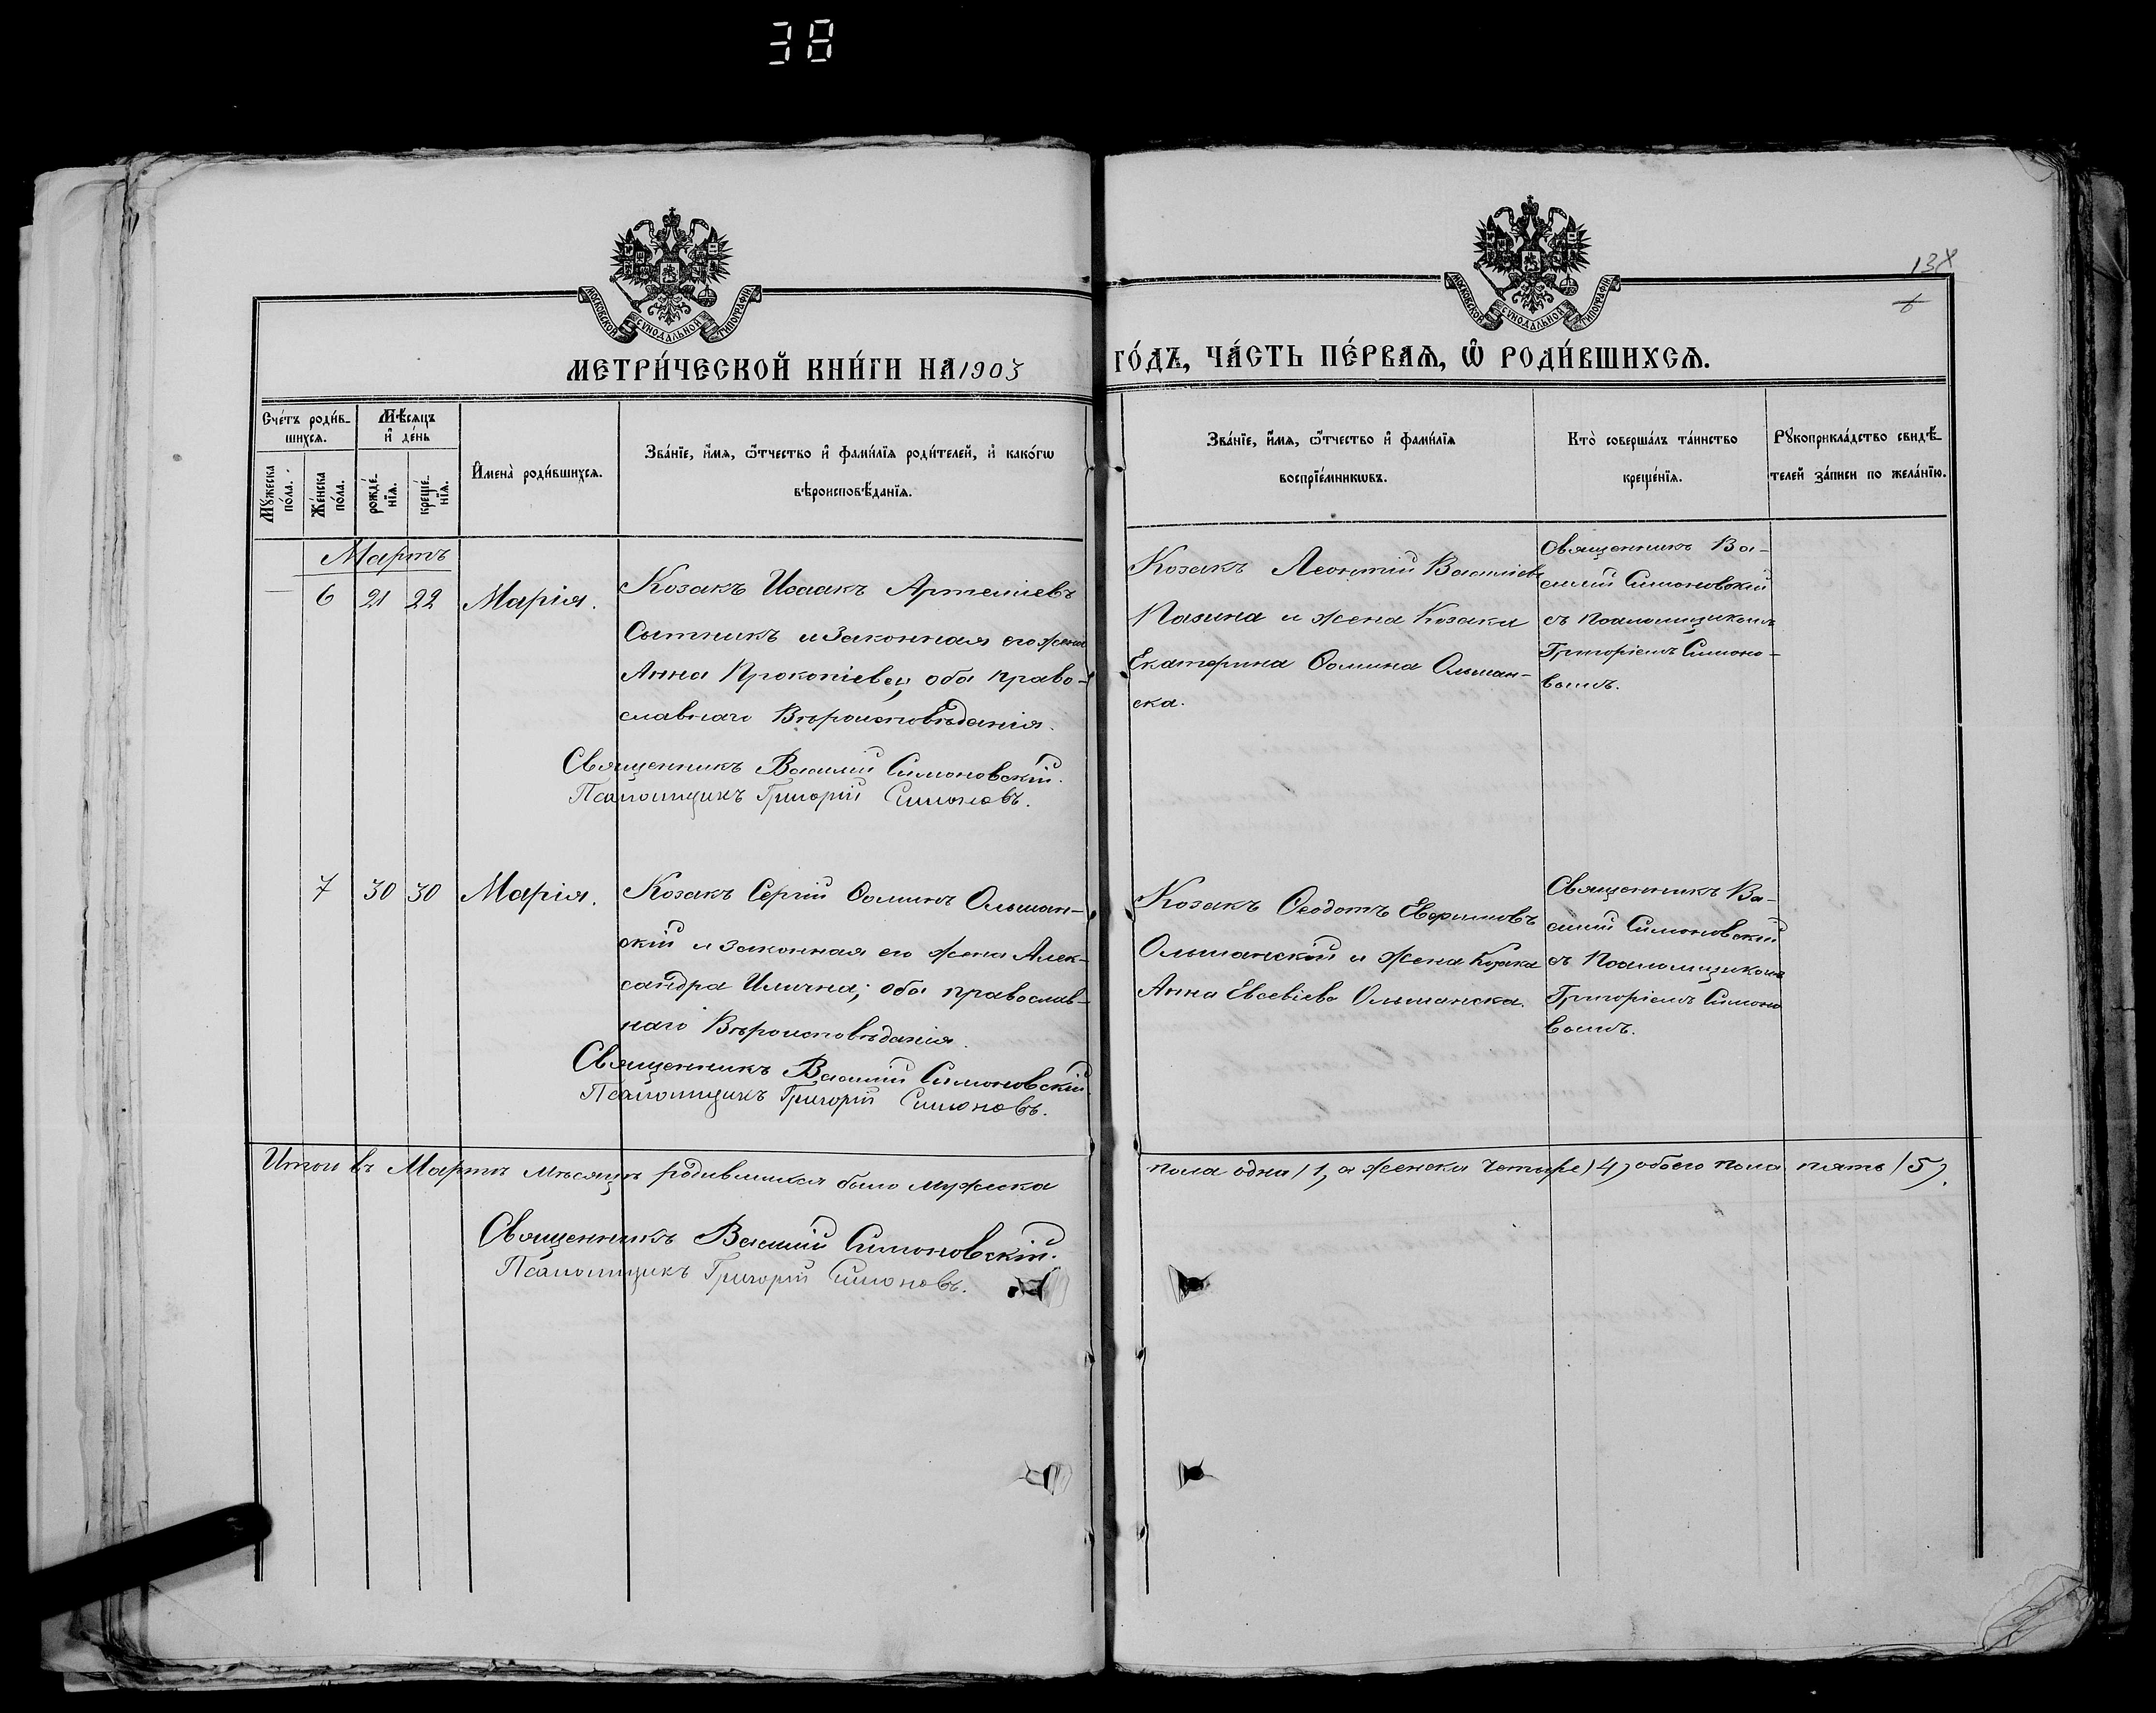 38
МОСКОВСКОЙ СѴНОДАЛЬНОЙ ТИПОГРАФІИ
МОСКОВСКОЙ СѴНОДАЛЬНОЙ ТИПОГРАФІИ
МЕТРИ́ЧЕСКОЙ КНИ́ГИ НА 1903
ГО́ДЪ, ЧА́СТЬ ПЕ́РВАѦ, Ѽ РОДИ́ВШИХСѦ.
Сче́тъ роди́в-
шихсѧ.
Мѣ́сѧцъ
и҆ де́нь
Мꙋ́жеска
по́ла.
Же́нска
по́ла.
рожде́-
нїѧ.
креще́-
нїѧ.
И҆мена̀ роди́вшихсѧ.
Зва́нїе, и҆́мѧ, ѻ҆́тчество и҆ фами́лїѧ роди́телей, и҆ како́гѡ
вѣроисповѣ́данїѧ.
Зва́нїе, и҆́мѧ, ѻ҆́тчество и҆ фами́лїѧ
воспрїе́мникѡвъ.
Кто̀ соверша́лъ та́инство
креще́нїѧ.
Рꙋкоприкла́дство свидѣ́-
телей за́писи по жела́нїю.
Мартъ
6 21 22 Марія.
Козакъ Исаакъ Артеміевъ
Сытникъ и законная его жена
Анна Прокопіева, оба право-
славнаго Вѣроисповѣданія.
Священникъ Василій Симоновскій.
Псаломщикъ Григорій Симоновъ.
Козакъ Леонтій Василіев
и жена Козака
Екатерина Ѳомина Ольшан-
ска.
Священникъ Ва-
силій Симоновскій
съ Псаломщикомъ
Григоріемъ Симоно-
вымъ.
7 30 30 Марія.
Козакъ Сергій Ѳоминъ Ольшан-
скій и законная его жена Алек-
сандра Илична; оба православ-
наго Вѣроисповѣданія.
Священникъ Василій Симоновскій.
Псаломщикъ Григорій Симоновъ.
Козакъ Ѳеодотъ Евфимовъ
Ольшанскій и жена Козака
Анна Евсевіева Ольшанска.
Священникъ Ва-
силій Симоновскій
съ Псаломщикомъ
Григоріемъ Симоно
вымъ.
Итого въ Мартѣ мѣсяцѣ родившихся было мужеска
пола одна (1, а женска четыре) 4, обоего пола пять (5).
Священникъ Василій Симоновскій.
Псаломщикъ Григорій Симоновъ.